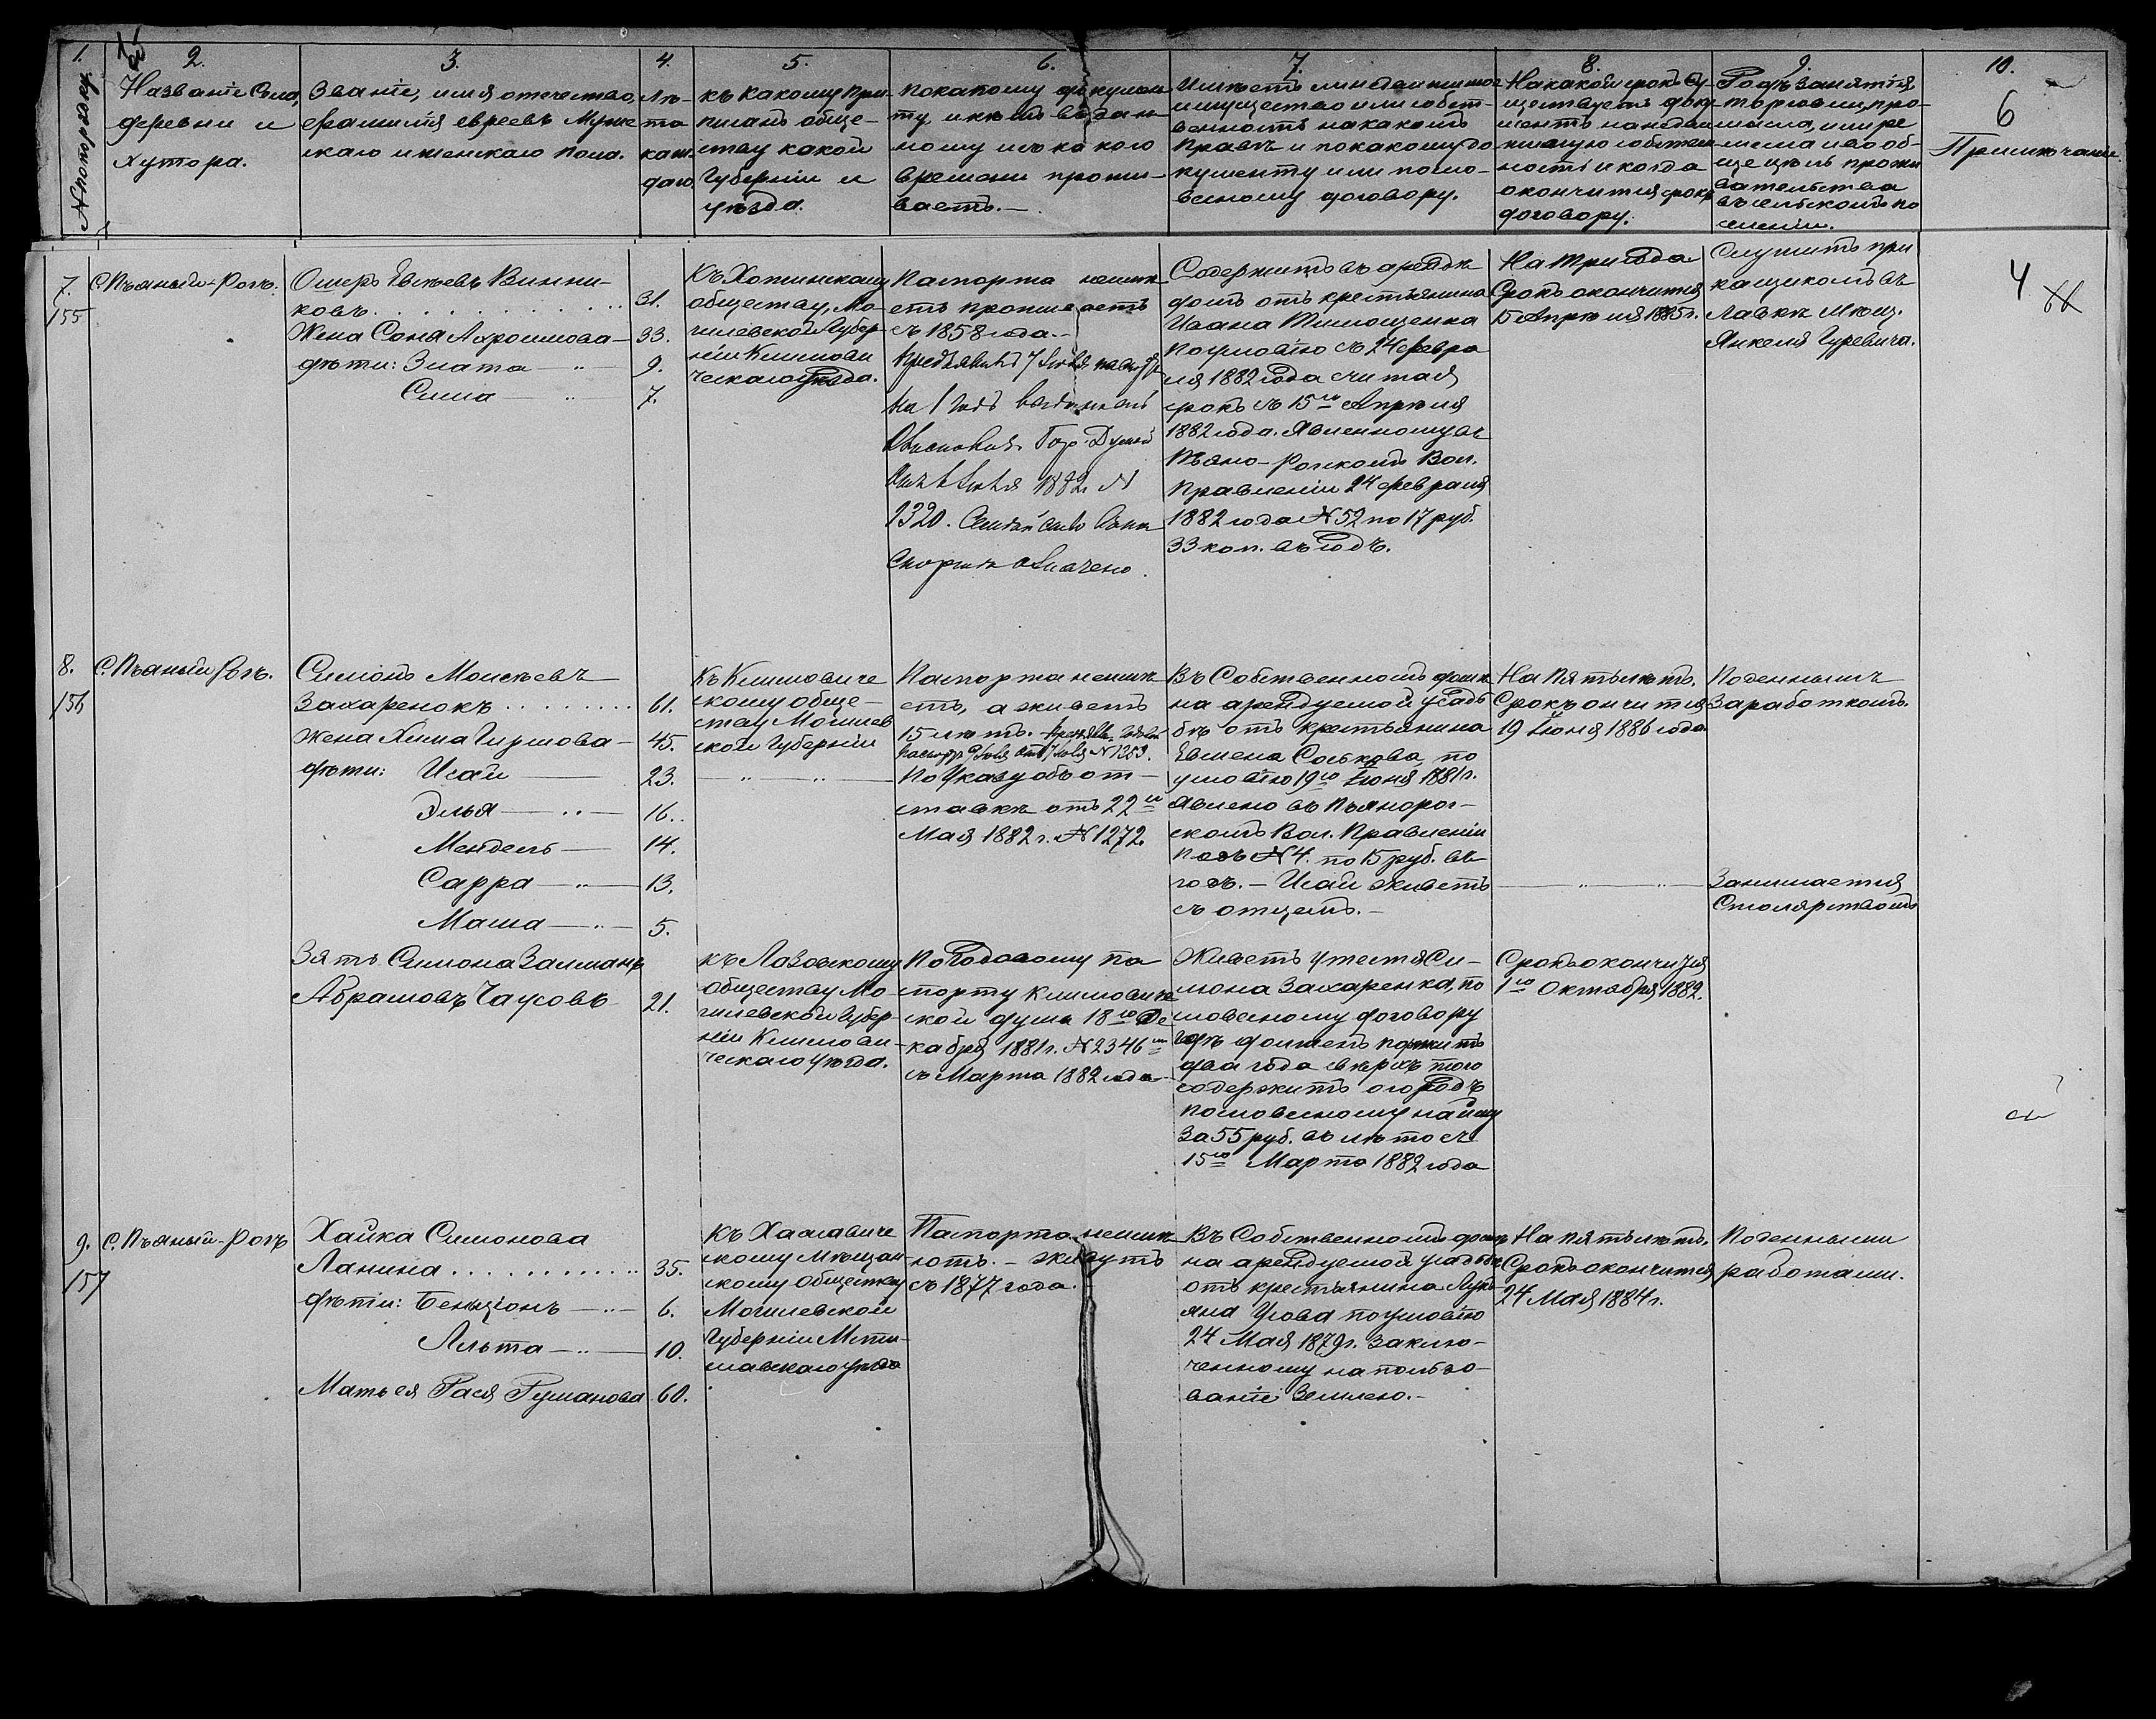 1.
2.
3.
4.
5.
6.
7.
8.
9.
10.
№ по порядку
Названіе Села,
деревни и
Хутора.
Званіе, имя отечество,
фамилія евреевъ Муже
скаго и женскаго пола.
Лѣ-
та
каж-
даго
къ какому при-
писанъ обще-
ству какой
Губерніи и
уѣзда.
По какому докумен-
ту и кѣмъ выдан-
ному и съ ка кого
времени прожи-
ваетъ.—
Имѣетъ ли недвижимое
имущество или собст-
венность на какомъ
правѣ и по какому до
кументу или по сло-
весному договору.
На какой срокъ су-
ществуетъ доку
ментъ на недви
жимую собствен
ность и когда
окончится срокъ
договору.
Родъ занятія
торговли, про-
мысла, или ре
месла и во об-
ще цѣль прожи
вательства
въ сельскомъ по
селеніи.
6
Примѣчаніе.
7.
155
С. Пьяный-Рогъ.
Ошеръ Евсѣевъ Винни-
ковъ
Жена Соня Абрамова —
дѣти: Злата — " —
Сима — " —
31.
33.
9.
7.
Къ Хотимскому
обществу, Мо-
гилевской Губер-
ніи Климови
ческаго уѣзда.
Паспорта неимѣ
етъ проживаетъ
съ 1858 года.—
на 1 годъ выданный
Гор. Думой
1882 г. №
1320. Семейство въ пас
портѣ означено.
Содержитъ въ арендѣ
домъ отъ крестьянина
Ивана Тимощенка
по условію съ 24 февра
ля 1882 года считая
срокъ съ 15го Апрѣля
1882 года. Явленному въ
Пьяно-Рогскомъ Вол.
Правленіи 24 февраля
1882 года № 52 по 17 руб.
33 коп. въ годъ.
На три года
Срокъ окончится
15 Апрѣля 1885 г.
Служитъ при
кащикомъ въ
Лавкѣ Мѣщ.
Янкеля Гуревича.
4
8.
156
С. Пьяный Рогъ.
Симонъ Моисѣевъ
Захаренокъ
Жена Хима Гиршова —
дѣти: Исай —
Элья — " —
Мендель —
Сарра — " —
Маша — " —
61.
45.
23.
16.
14.
13.
5.
Къ Климовиче
скому обще-
ству Могилев
ской Губерніи
— " — " —
Паспорта неимѣ
етъ, а живетъ
15 лѣтъ.
По Указу объ от-
ставкѣ отъ 22го
Мая 1882 г. № 1272.
Въ Собственномъ домѣ
на арендуемой усадь
бѣ отъ крестьянина
Евмена Соськова, по
условію 19го Іюня 1881 г.
Явлено въ Пьянорог-
скомъ Вол. Правленіи
подъ № 4. по 15 руб. въ
годъ. — Исай живетъ
съ отцемъ. —
На пять лѣтъ.
Срокъ ончится
19 Іюня 1886 года
— " — " —
Поденнымъ
Заработкомъ.
Занимается
Столярствомъ
Зять Симона Залманъ
Абрамовъ Чаусовъ
21.
къ Лазовскому
обществу Мо-
гилевской Губер-
ніи Климови-
ческаго уѣзда.
По Годовому па
спорту Климовиче
ской думы 18го Де
кабря 1881 г. № 2346
съ Марта 1882 года
Живетъ у тестя Си-
мона Захаренка, по
словесному договору
гдѣ долженъ прожить
два года сверхъ того
содержитъ огородъ
по словесному найму
за 55 руб. въ лѣто съ
15го Марта 1882 года
Срокъ окончится
1го Октября 1882.
9.
157
С. Пьяный-Рогъ
Хайка Симонова
Ланина
дѣти: Бенціонъ — " —
Альта — " —
Мать ея Гася Гуманова
35.
6.
10.
60.
Къ Хаславиче
скому Мѣщан
скому обществу
Могилевской
Губерніи Мсти-
славскаго уѣзда
Паспорта неимѣ
ютъ. — живутъ
съ 1877 года.
Въ Собственномъ домѣ
на арендуемой усадьбѣ
отъ крестьянина Лукь
яна Усова по условію
24 Мая 1879 г. заклю-
ченному на пользо-
ваніе Землею. —
На пять лѣтъ.
Срокъ окончится
24 Мая 1884 г.
Поденными
работами.